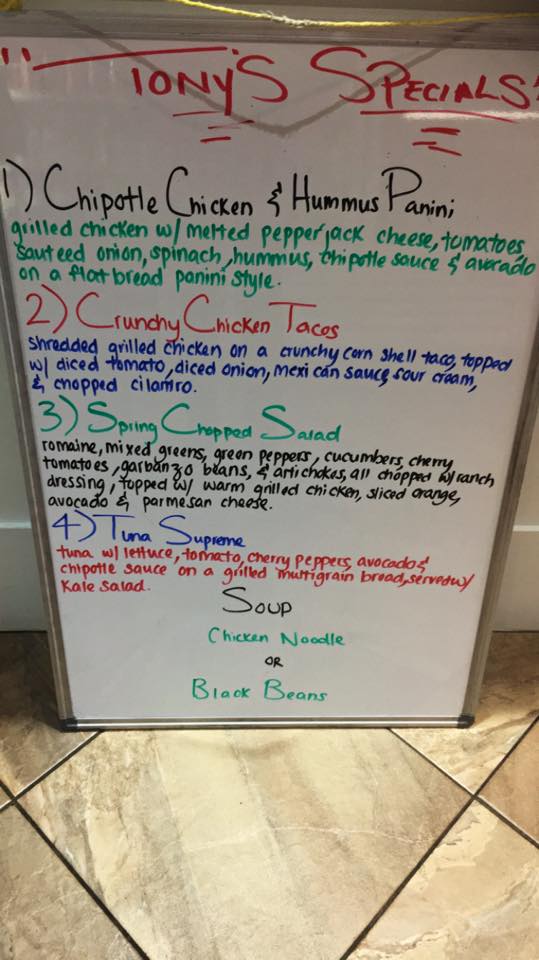 "TONY'S SPECIALS"
1) Chipotle Chicken & Hummus Panini
grilled chicken w/ melted pepperjack cheese, tomatoes,
sauteed onion, spinach, hummus, chipotle sauce & avocado
on a flat bread panini style.
2) Crunchy Chicken Tacos
shredded grilled chicken on a crunchy corn shell taco, topped
w/ diced tomato, diced onion, mexican sauce, sour cream,
& chopped cilantro.
3) Spring Chopped Salad
romaine, mixed greens, green peppers, cucumbers, cherry
tomatoes, garbanzo beans, & artichokes, all chopped w/ ranch
dressing, topped w/ warm grilled chicken, sliced orange,
avocado & parmesan cheese.
4) Tuna Supreme
tuna w/ lettuce, tomato, cherry peppers, avocado &
chipotle sauce on a grilled multigrain bread, served w/
Kale Salad.
Soup
Chicken Noodle
OR
Black Beans